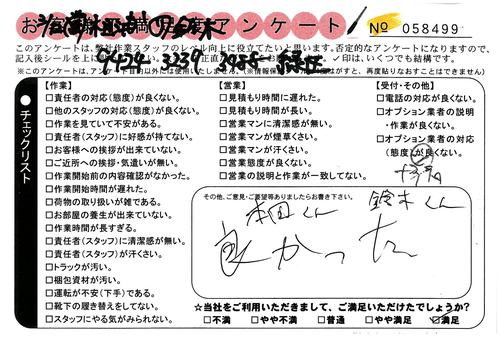 お客様満足度アンケート! № 058499
このアンケートは、弊社作業スタッフのレベル向上に役立てたいと思います。否定的なアンケートになりますので、
※このアンケートは、アンケート目的以外には使用いたしません。
チェックリスト
【作業】
□責任者の対応(態度)が良くない。
□他のスタッフの対応(態度)が良くない。
□作業を見ていて不安がある。
□責任者(スタッフ)に好感が持てない。
□お客様への挨拶が出来ていない。
□ご近所への挨拶・気遣いが無い。
□作業開始前の内容確認がなかった。
□作業開始時間が遅れた。
□荷物の取り扱いが雑である。
□お部屋の養生が出来ていない。
□作業時間が長すぎる。
□責任者(スタッフ)に清潔感が無い。
□責任者(スタッフ)が汗くさい。
□トラックが汚い。
□梱包資材が汚い。
□運転が不安(下手)である。
□靴下の履き替えをしてない。
□スタッフにやる気がみられない。
【営業】
□見積もり時間に遅れた。
□見積もり時間が長い。
□営業マンに清潔感が無い。
□営業マンが煙草くさい。
□営業マンが汗くさい。
□営業態度が良くない。
□営業の説明と作業が一致してない。
【受付・その他】
□電話の対応が良くない。
□オプション業者の説明
・作業が良くない。
□オプション業者の対応
(態度)が良くない。
その他、ご意見・ご要望等ありましたらお書き下さい。
本田くん 鈴木くん
良かった
☆当社をご利用いただきまして、ご満足いただけたでしょうか?
□不満 □やや不満 □普通 □やや満足 ☑満足